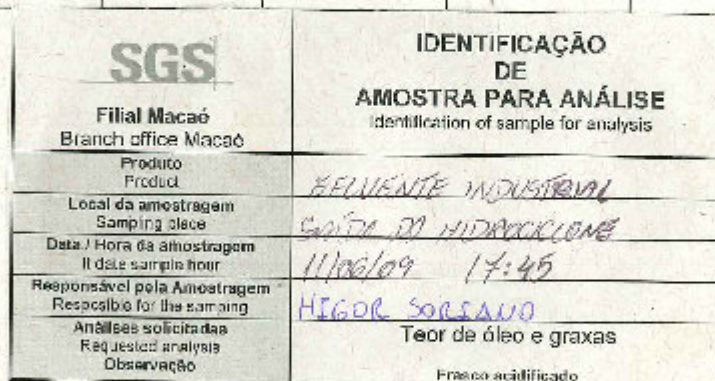 SGS
Filial Macaé
Branch office Macaé
IDENTIFICAÇÃO
DE
AMOSTRA PARA ANÁLISE
Identification of sample for analysis
Produto
Product
EFLUENTE INDUSTRIAL
Local da amostragem
Sampling place
SAÍDA DO HIDROCICLONE
Data / Hora da amostragem
II date sample hour
11/06/09 17:45
Responsável pela Amostragem
Resposible for the samping
HIGOR SORIANO
Análises solicitadas
Requested analysis
Observação
Teor de óleo e graxas
Frasco acidificado